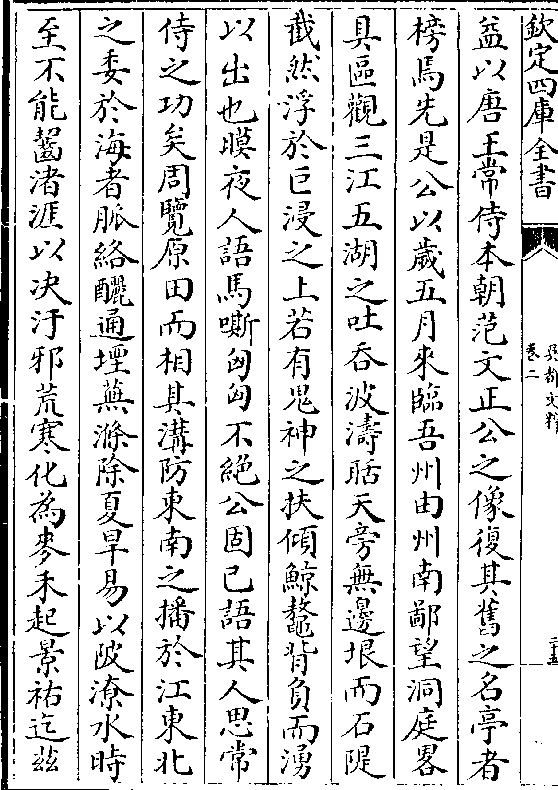 欽定四庫全書
吳都文粹
卷二
二十五
益以唐王常侍本朝范文正公之像復其舊之名亭者
榜焉先是公以歲五月來臨吾州由州南鄙望洞庭畧
具區觀三江五湖之吐吞波濤聒天旁無邊垠而石隄
截然浮於巨浸之上若有鬼神之扶傾鯨鼇背負而湧
以出也暯夜人語馬嘶匈匈不絶公固已語其人思常
侍之功矣周覽原田而相其溝防東南之播於江東北
之委於海者脈絡釃通堙蕪滌除夏旱易以陂潦水時
至不能齧渚涯以决汙邪荒寒化為麥禾起景祐迄兹